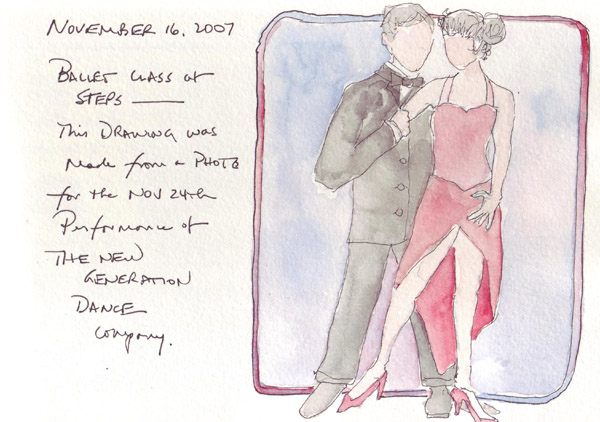 NOVEMBER 16, 2007
BALLET CLASS at
STEPS —
This DRAWING was
made from a PHOTO
for the NOV 24th
Performance of
THE NEW
GENERATION
DANCE
Company.